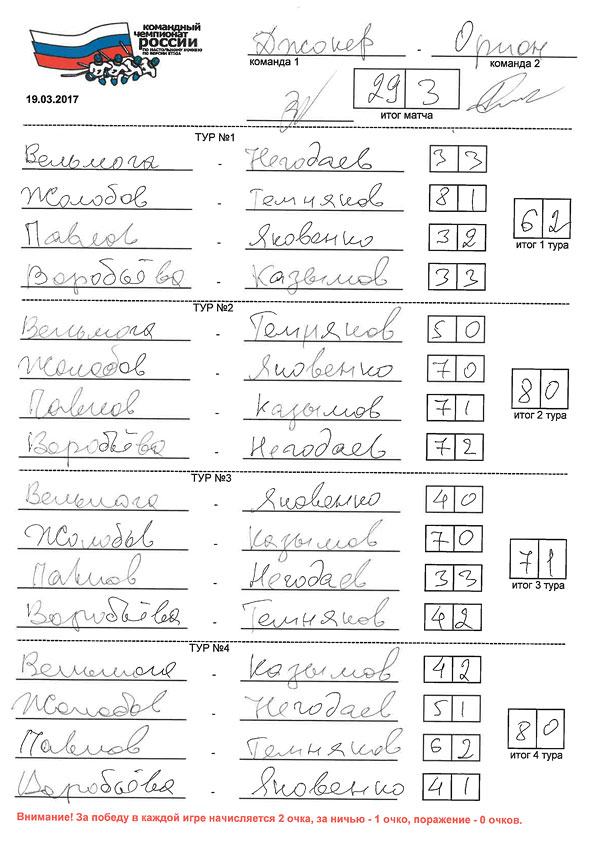 КОМАНДНЫЙ
ЧЕМПИОНАТ
РОССИИ
ПО НАСТОЛЬНОМУ ХОККЕЮ
ПО ВЕРСИИ ETHGA
Джокер - Орион
команда 1 команда 2
19.03.2017
29 3
итог матча
ТУР №1
Вельмога - Негодаев 3 3
Жолобов - Темняков 8 1
Павлов - Яковенко 3 2
Воробьёва - Казымов 3 3
6 2
итог 1 тура
ТУР №2
Вельмога - Темняков 5 0
Жолобов - Яковенко 7 0
Павлов - Казымов 7 1
Воробьёва - Негодаев 7 2
8 0
итог 2 тура
ТУР №3
Вельмога - Яковенко 4 0
Жолобов - Казымов 7 0
Павлов - Негодаев 3 3
Воробьёва - Темняков 4 2
7 1
итог 3 тура
ТУР №4
Вельмога - Казымов 4 2
Жолобов - Негодаев 5 1
Павлов - Темняков 6 2
Воробьёва - Яковенко 4 1
8 0
итог 4 тура
Внимание! За победу в каждой игре начисляется 2 очка, за ничью - 1 очко, поражение - 0 очков.